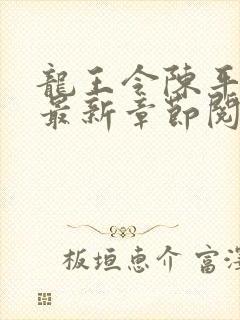 龍王令陳平
最新章節閱
板垣恵介 富澤